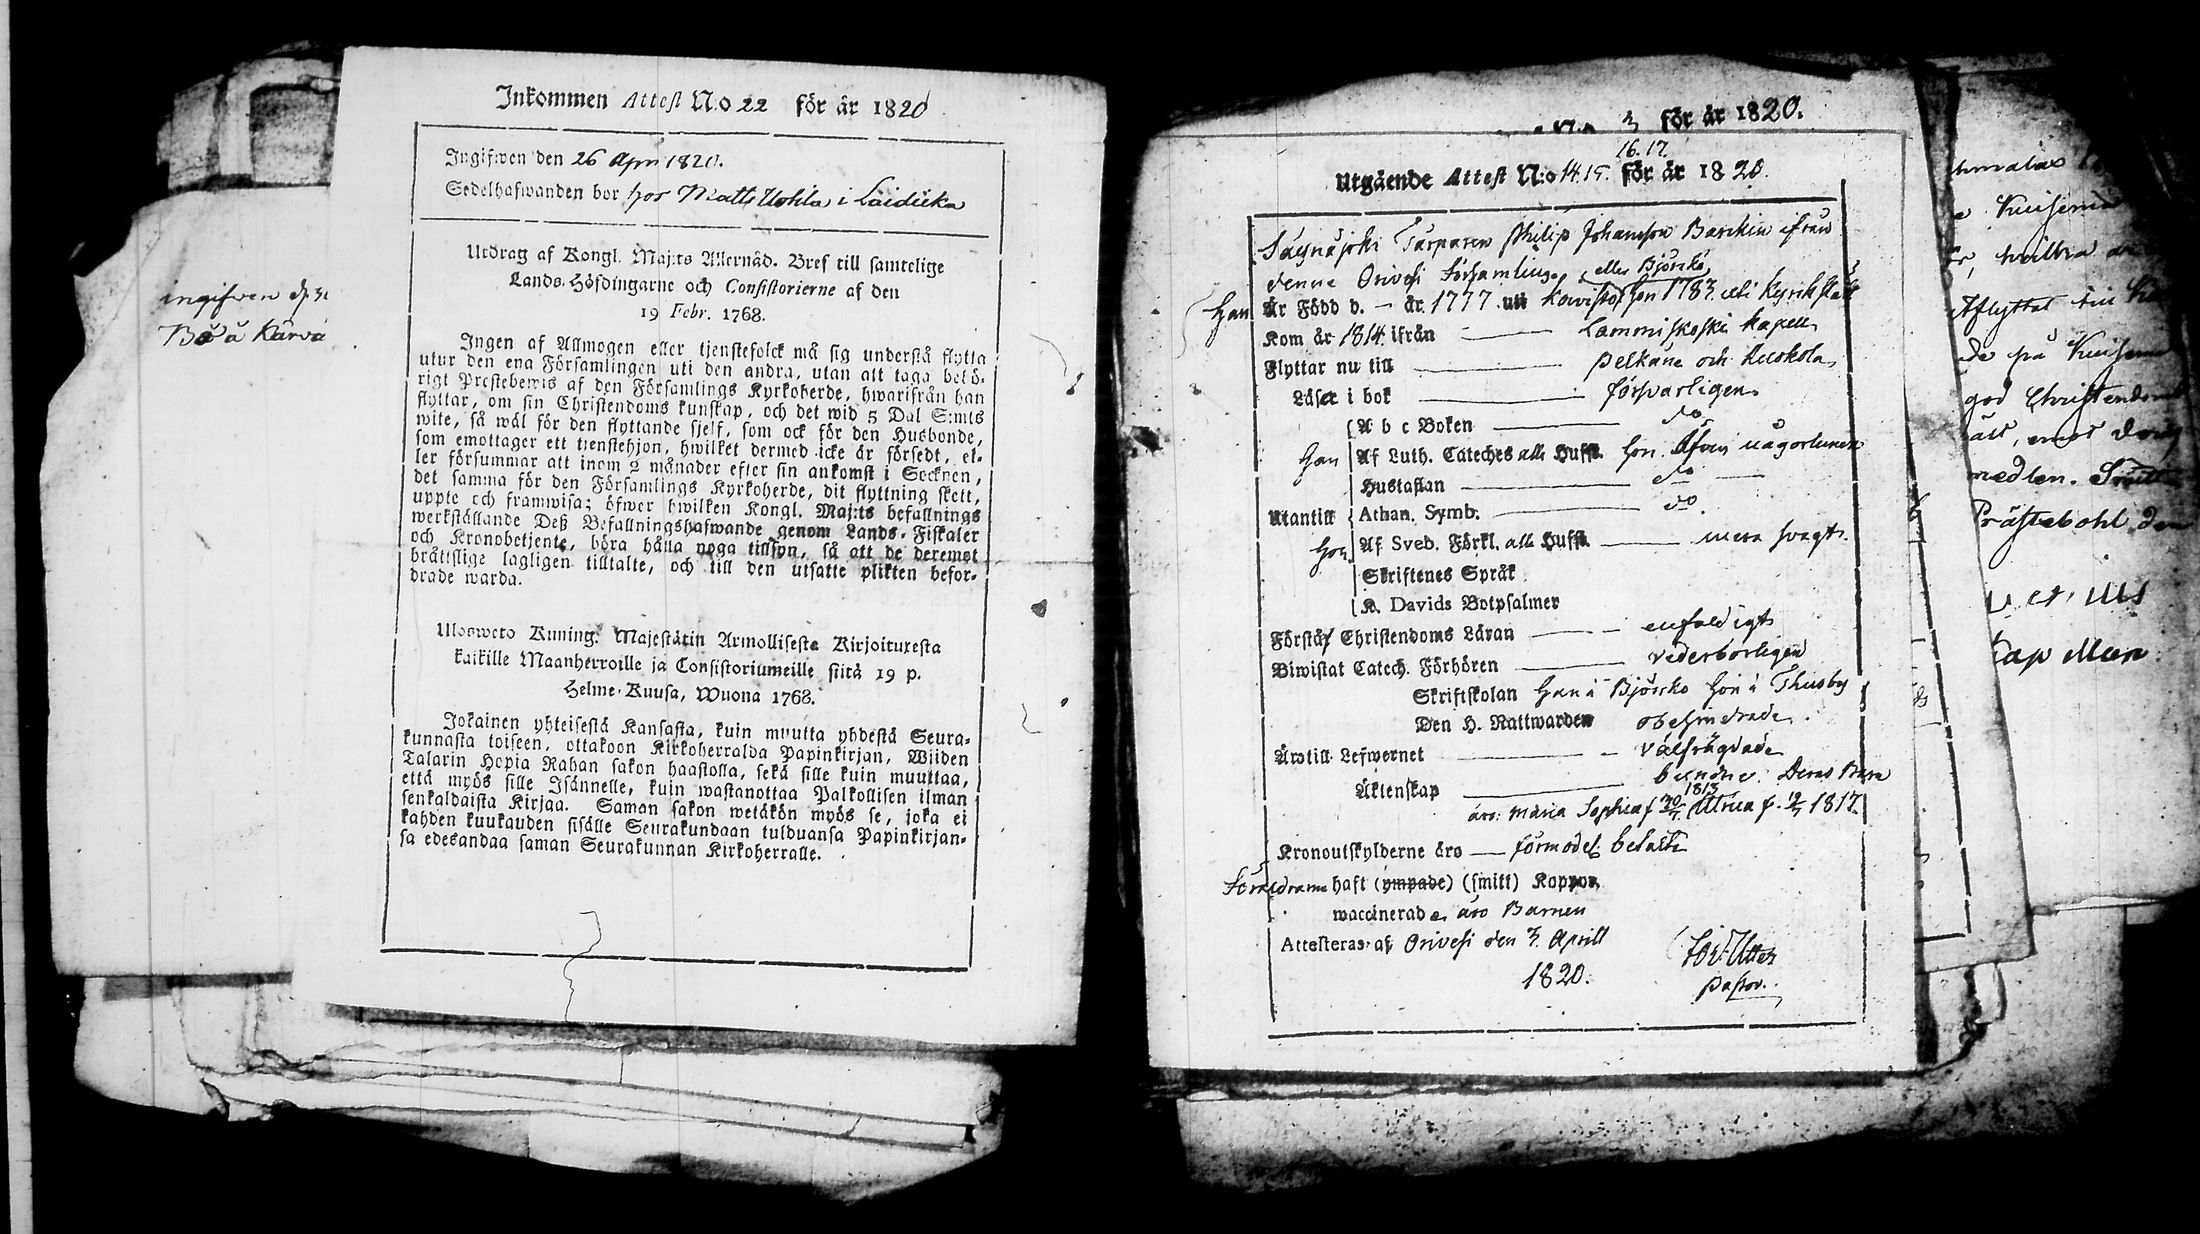 Inkommen Attest N:o 22 för år 1820
Ingifwen den 26 Apri 1820.
Sedelhafwanden bor hos Matts Uohla i Laidicka
Utdrag af Kongl. Maj:ts Allernåd. Bref till samtelige
Lands-Höfdingarne och Consistorierne af den
19 Febr. 1768.
Ingen af Allmogen eller tjenstefolck må sig understå flytta
utur den ena Församlingen uti den andra, utan att taga behö-
rigt Prestebewis af den Församlings Kyrkoherde, hwarifrån han
flyttar, om sin Christendoms kunskap, och det wid 5 Dal S:mts
wite, så wäl för den flyttande sjelf, som ock för den Husbonde,
som emottager ett tienstehjon, hwilket dermed icke är försedt, el-
ler försummar att inom 2 månader efter sin ankomst i Socknen,
det samma för den Församlings Kyrkoherde, dit flyttning skett,
uppte och framwisa; öfwer hwilken Kongl. Maj:ts befallnings
werkställande Deß Befallningshafwande genom Lands-Fiskaler
och Kronobetjente, böra hålla noga tillsyn, så att de deremot
bråttslige lagligen tilltalte, och till den utsatte plikten befor-
drade warda.
Ulosweto Kuning. Majestätin Armollisesta Kirjoituxesta
kaikille Maanherroille ja Consistoriumeille siitä 19 p.
Helme-Kuusa, Wuona 1768.
Jokainen yhteisestä Kansasta, kuin muutta yhdestä Seura-
kunnasta toiseen, ottakoon Kirkoherralda Papinkirjan, Wiiden
Talarin Hopia Rahan sakon haastolla, sekä sille kuin muuttaa,
että myös sille Isännelle, kuin wastanottaa Palkollisen ilman
senkaldaista Kirjaa. Saman sakon wetäkön myös se, joka ei
kahden kuukauden sisälle Seurakundaan tulduansa Papinkirjan-
sa edesandaa saman Seurakunnan Kirkoherralle.
ingifven d. 31
Bo å Kärvä
3 för år 1820.
16. 17.
Utgående Attest N:o 14. 15. för år 1820.
Säynäjoki Torparen Philip Johansson Barckin ifrån
denna Orivesi Församling, eller Björcko
Han Är Född d. — år 1777 uti Koivisto hon 1783 uti Kyrkslätt
Kom år 1814 ifrån Lammiskoski kapell
Flyttar nu till Pelkäne och Kuskola
Läser i bok försvarligen
A b c Boken do
Han Af Luth. Cateches all. Hufst. hon. Äfven någorlunda
Hustaflan do
Utantill Athan. Symb. do.
Hon Af Sved. Förkl. all. Hufst. mera svagt
Skriftenes Språk
K. Davids Botpsalmer
Förstår Christendoms Läran enfaldigt
Biwistat Catech. Förhören vederbörligen
Skriftskolan Han i Björcko Hon i Thusby
Den H. Nattwarden obehindrade.
Äro till Lefwernet välfrägdade
Äktenskap bundne. Deras Barn
äro: Maria Sophia f. 30/7 1813 Ulrica f. 12/7 1817.
Kronoutskylderne äro — förmodel. betalta
Föräldrarne haft (ympade) (smitt) Koppor,
waccinerade äro Barnen
Attesteras af Orivesi den 3. Aprill
1820.
Pastor.
Kuisema
Aflyttat till
de på Kuisema
god Christendoms
medlen.
Prästebohl den